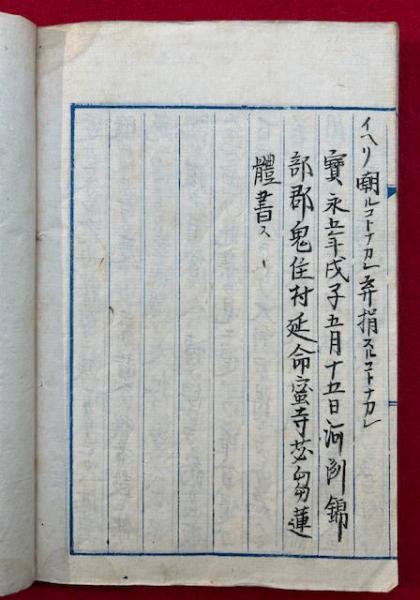 イヘリ嘲ルコトナカレ弃指スルコトナカレ
寶永五年戊子五月十五日河刕錦
部郡鬼住村延命蜜寺苾芻蓮
體書ス